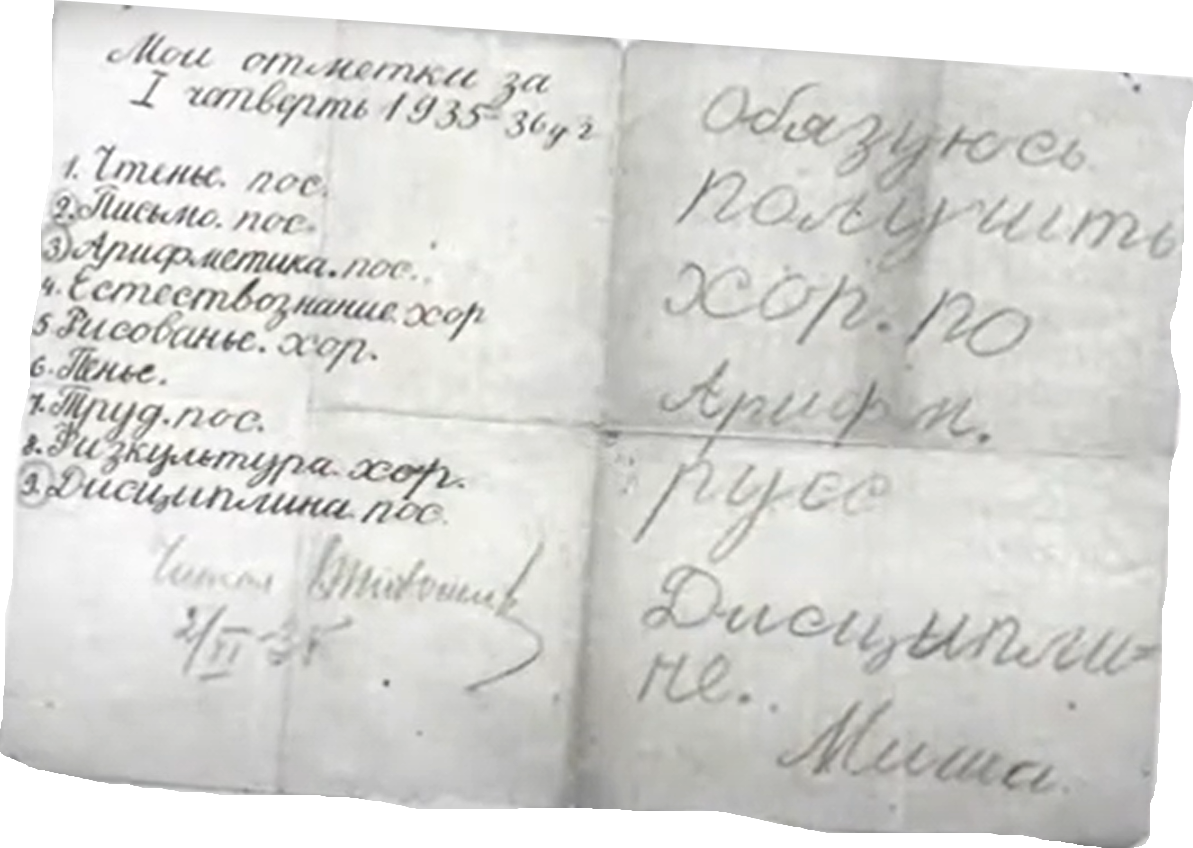 Мои отметки за
I четверть 1935-36 у г
1. Чтенье. пос.
2. Письмо. пос.
3 Арифметика. пос.
4. Естествознание. хор
5. Рисованье. хор.
6. Пенье.
7. Труд. пос.
8. Физкультура. хор.
9. Дисциплина. пос.
Читал
2/XI-35
Обязуюсь
получить
хор. по
Арифм.
русс
Дисципли-
не.
Миша.